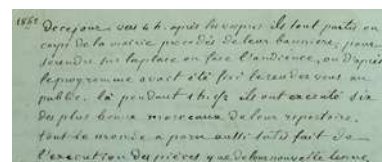 1862 De ce jour vers 4 h. après les vêpres ils sont partis en
corps de la mairie précédés de leur bannière, pour
se rendre sur la place en face l'audience, ou d'après
le programme avait été fixé le rendez vous au
public. là pendant 1 h. ils ont exécuté six
des plus beaux morceaux de leur repertoire.
tout le monde a paru satisfait de
l'execution des pièces que de leur nouvelle tenue